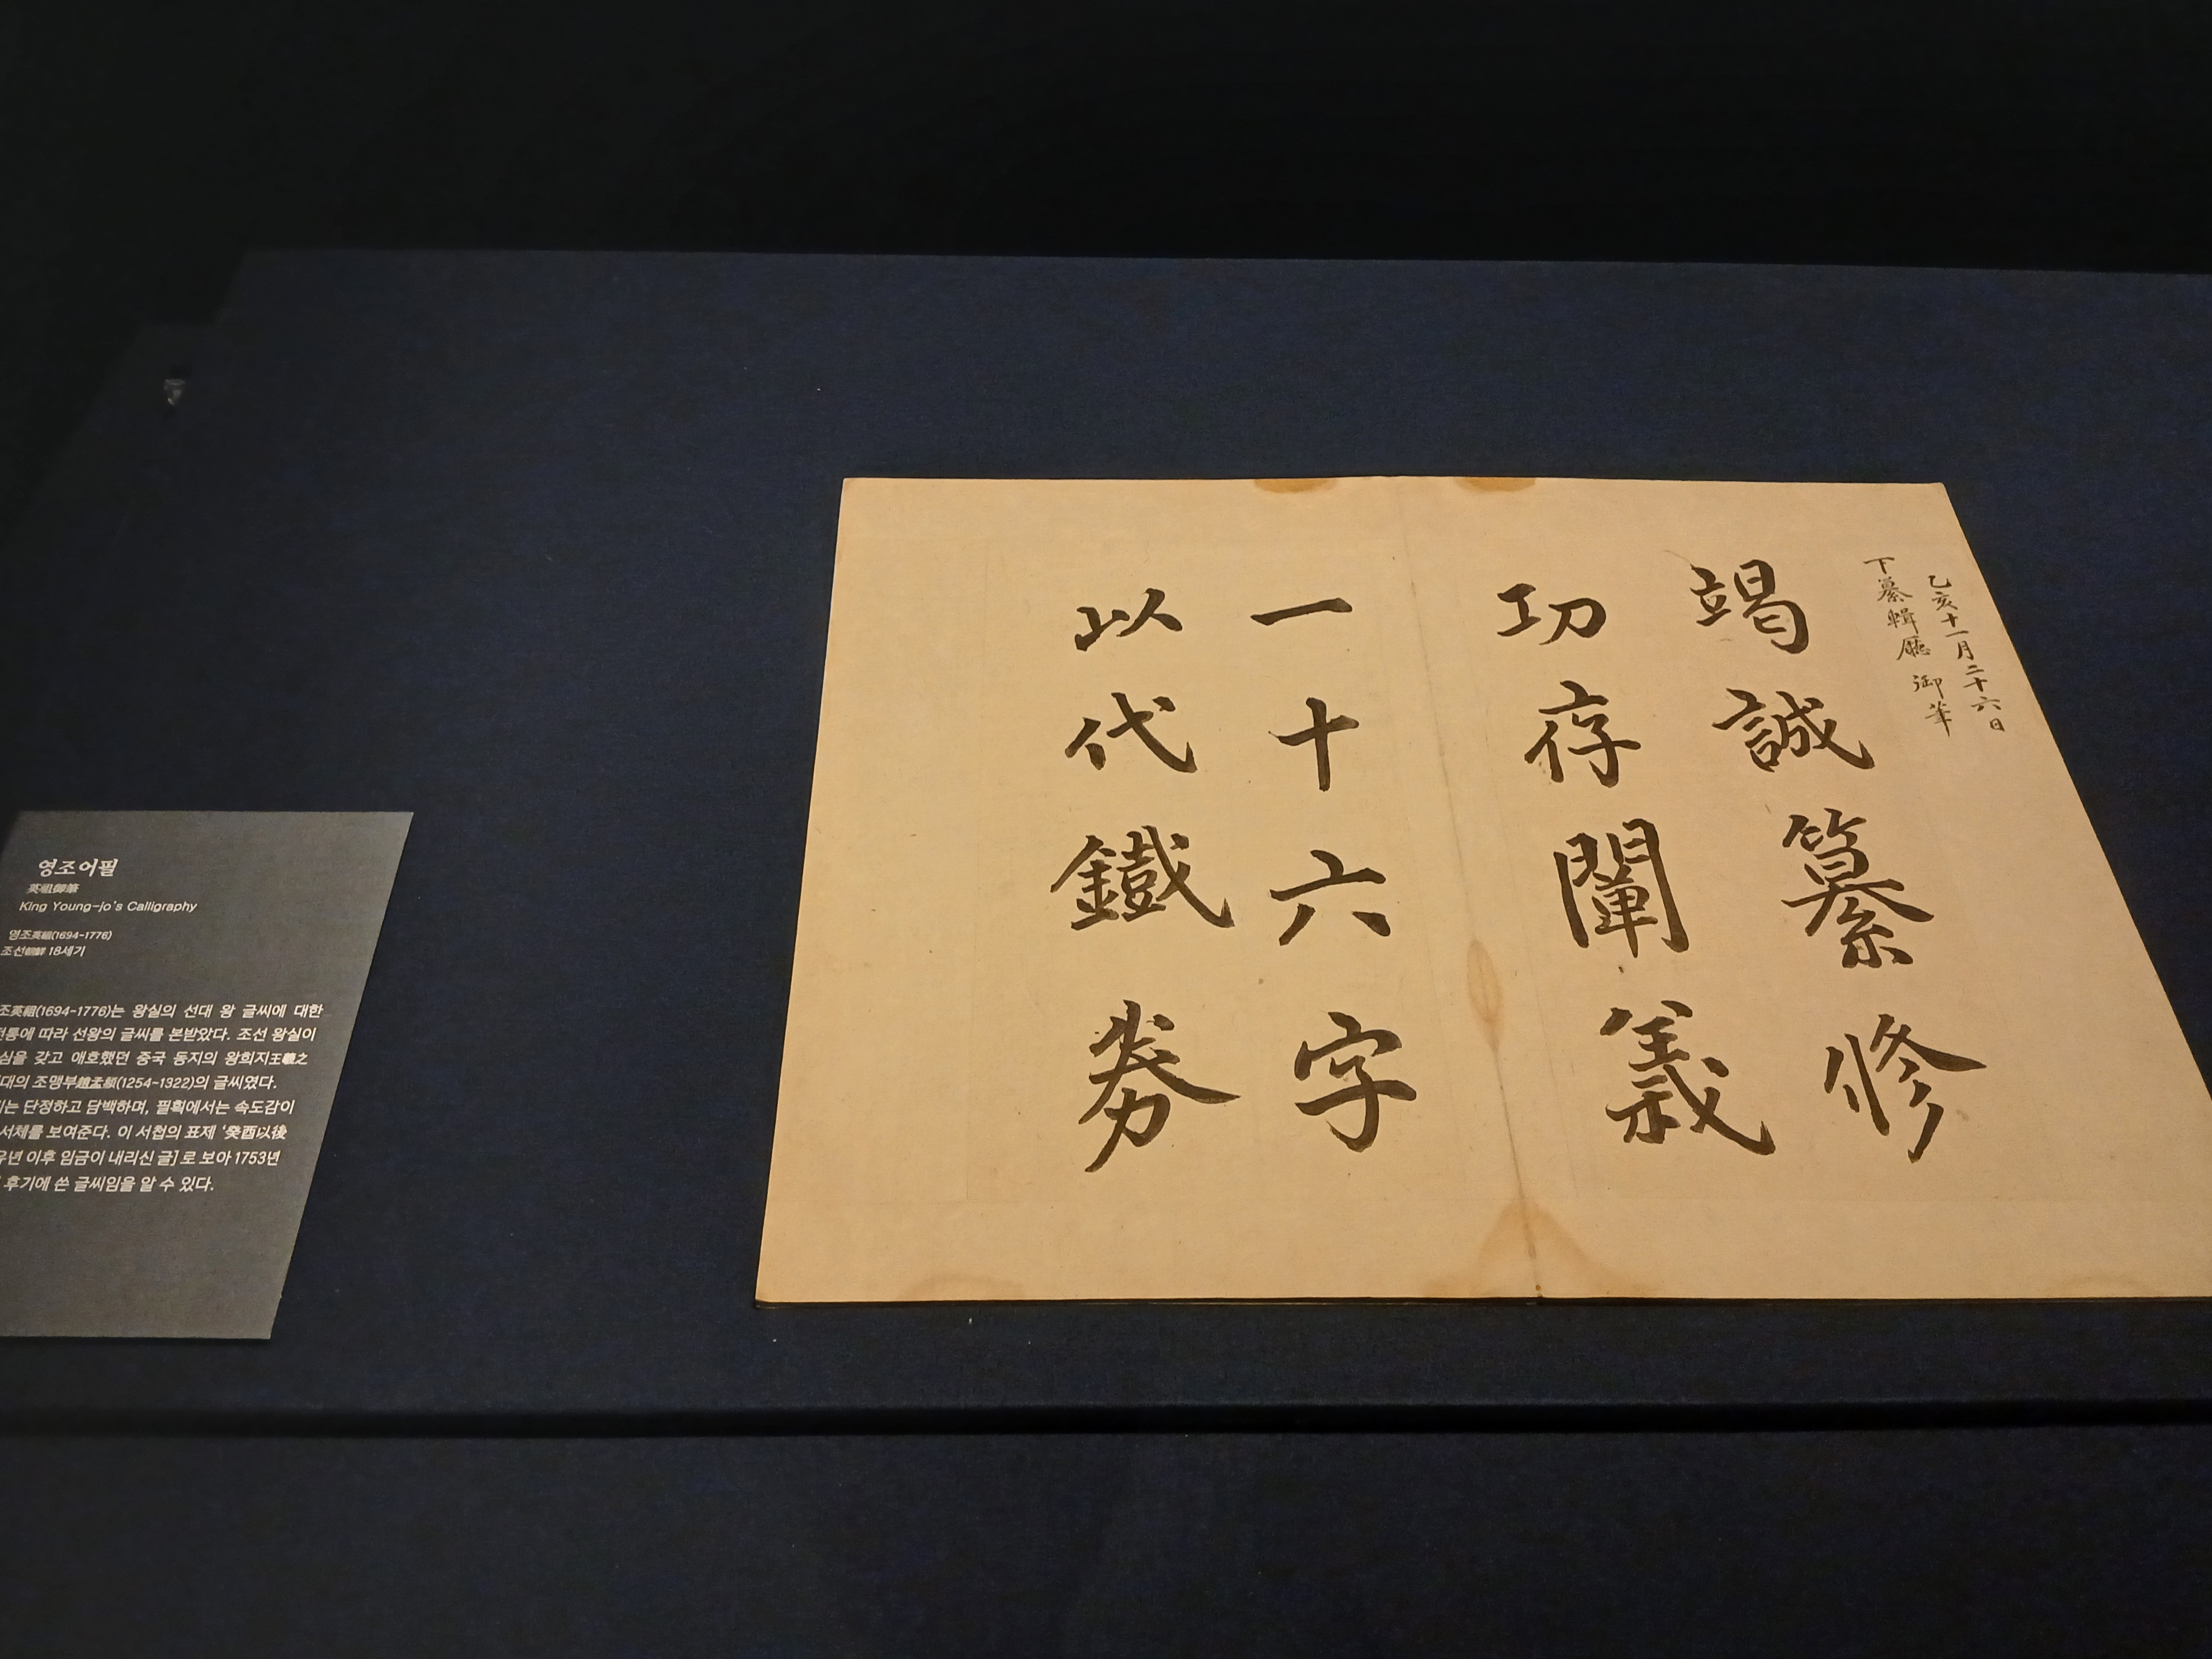 영조어필
英祖御筆
King Young-jo's Calligraphy
영조英祖(1694-1776)
조선朝鮮 18세기
조英祖(1694-1776)는 왕실의 선대 왕 글씨에 대한
전통에 따라 선왕의 글씨를 본받았다. 조선 왕실이
심을 갖고 애호했던 중국 동지의 왕희지王羲之
대의 조맹부趙孟頫(1254-1322)의 글씨였다.
는 단정하고 담백하며, 필획에서는 속도감이
서체를 보여준다. 이 서첩의 표제 '癸酉以後
유년 이후 임금이 내리신 글]로 보아 1753년
후기에 쓴 글씨임을 알 수 있다.
乙亥十一月二十六日
下纂輯廳 御筆
竭誠纂修
功存闡義
一十六字
以代鐵券